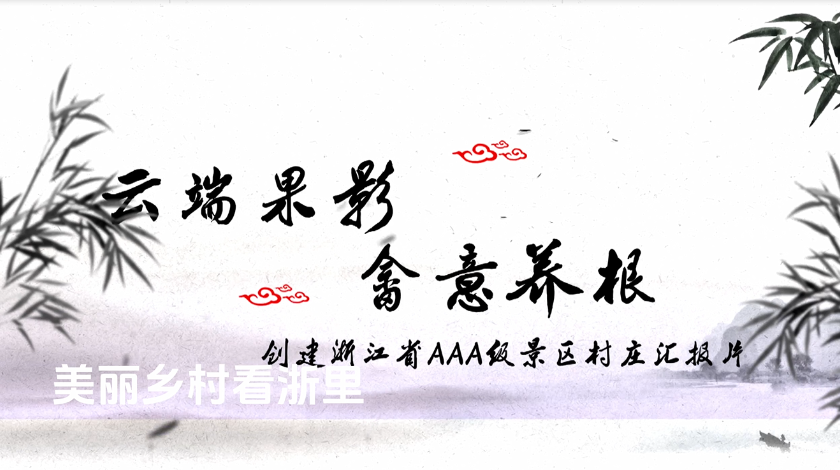 云端果影
禽意养根
创建浙江省AAA级景区村庄汇报片
美丽乡村看浙里